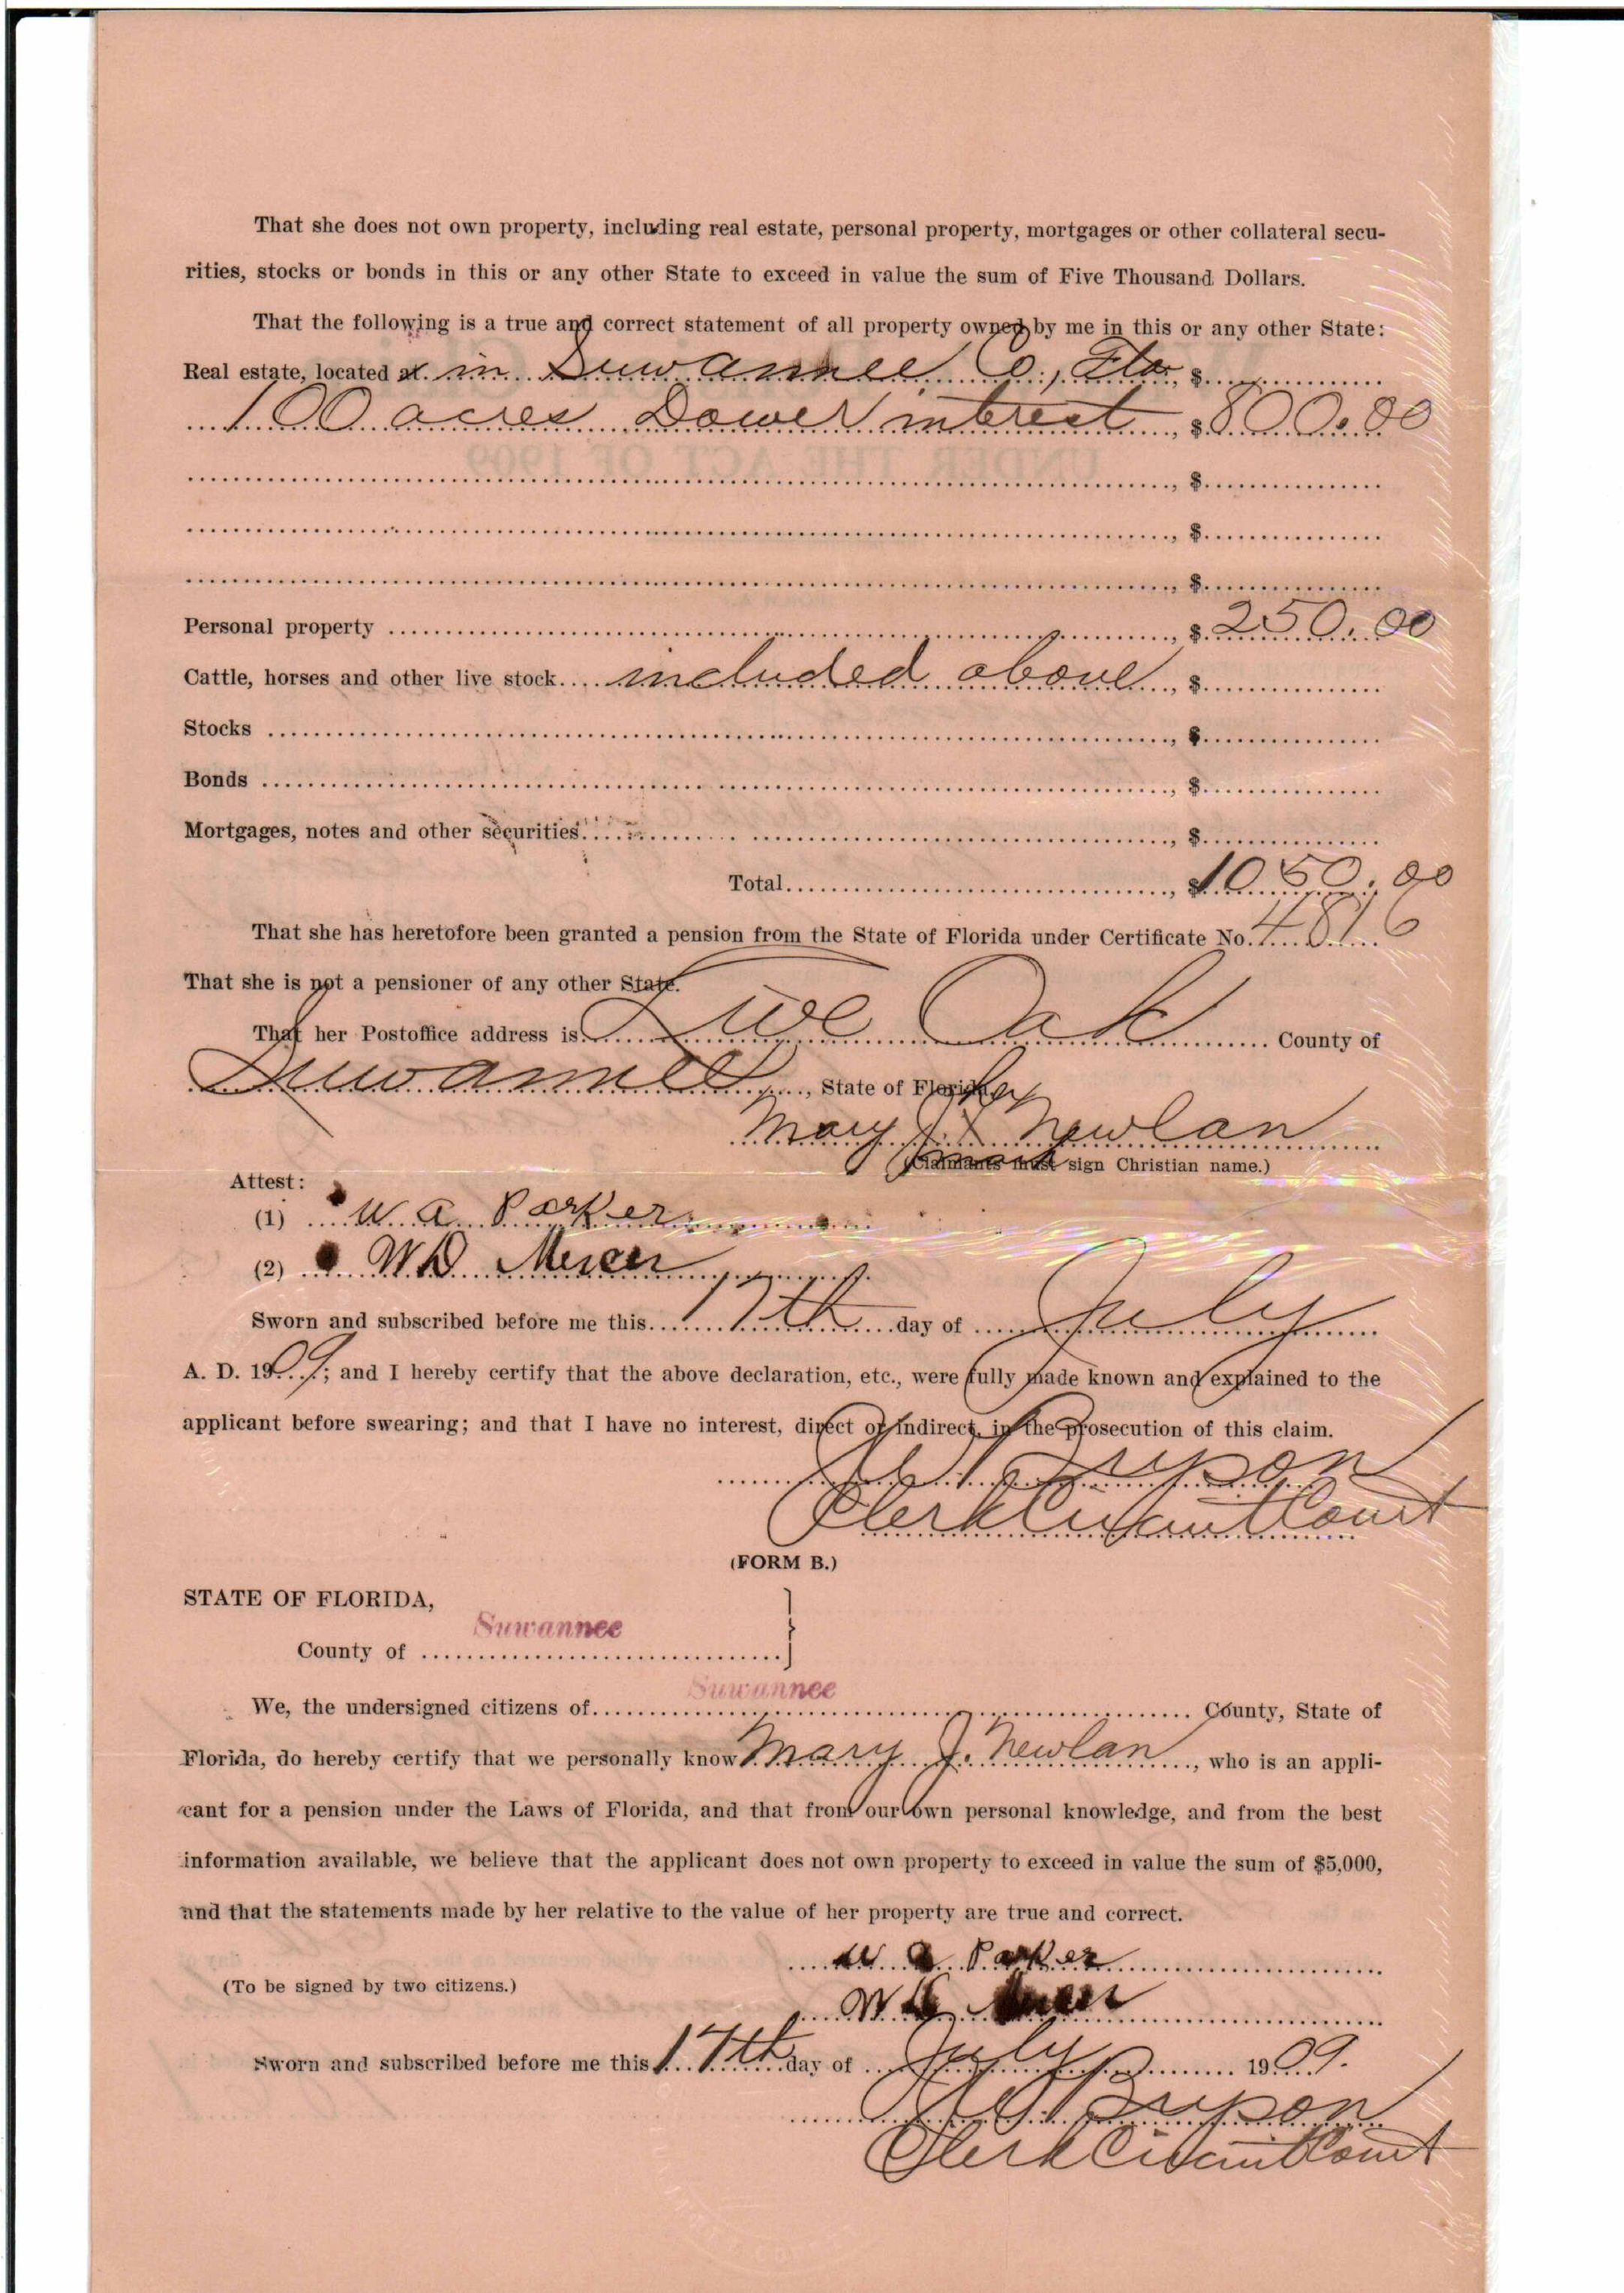 That she does not own property, including real estate, personal property, mortgages or other collateral secu-
rities, stocks or bonds in this or any other State to exceed in value the sum of Five Thousand Dollars.
That the following is a true and correct statement of all property owned by me in this or any other State:
Real estate, located at in Suwannee Co., Fla, $
100 acres Dower interest, $800.00
UNDER THE ACT OF 1909
, $
, $
, $
Personal property, $250.00
Cattle, horses and other live stock included above, $
Stocks, $
Bonds, $
Mortgages, notes and other securities, $
Total, $1050.00
That she has heretofore been granted a pension from the State of Florida under Certificate No. 4816
That she is not a pensioner of any other State.
That her Postoffice address is Live Oak County of
Suwannee, State of Florida.
her
Mary J. X Newlan
mark
(Claimants must sign Christian name.)
Attest:
(1) W. A. Parker
(2) W D Mercer
Sworn and subscribed before me this 17th day of July
A. D. 1909; and I hereby certify that the above declaration, etc., were fully made known and explained to the
applicant before swearing; and that I have no interest, direct or indirect, in the prosecution of this claim.
Bryson
Clerk Circuit Court
(FORM B.)
STATE OF FLORIDA,
County of Suwannee
We, the undersigned citizens of Suwannee County, State of
Florida, do hereby certify that we personally know Mary J. Newlan, who is an appli-
cant for a pension under the Laws of Florida, and that from our own personal knowledge, and from the best
information available, we believe that the applicant does not own property to exceed in value the sum of $5,000,
and that the statements made by her relative to the value of her property are true and correct.
W A Parker
(To be signed by two citizens.)
W D Mercer
Sworn and subscribed before me this 17th day of July 1909.
Bryson
Clerk Circuit Court